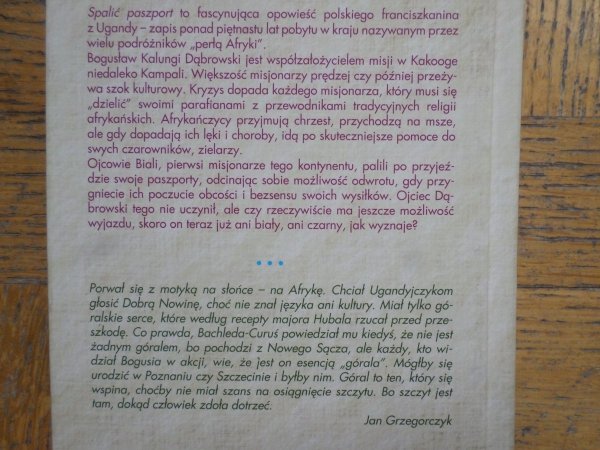 Spalić paszport to fascynująca opowieść polskiego franciszkanina
z Ugandy – zapis ponad piętnastu lat pobytu w kraju nazywanym przez
wielu podróżników „perłą Afryki”.
Bogusław Kalungi Dąbrowski jest współzałożycielem misji w Kakooge
niedaleko Kampali. Większość misjonarzy prędzej czy później przeży-
wa szok kulturowy. Kryzys dopada każdego misjonarza, który musi się
„dzielić” swoimi parafianami z przewodnikami tradycyjnych religii
afrykańskich. Afrykańczycy przyjmują chrzest, przychodzą na msze,
ale gdy dopadają ich lęki i choroby, idą po skuteczniejsze pomoce do
swych czarowników, zielarzy.
Ojcowie Biali, pierwsi misjonarze tego kontynentu, palili po przyjeź-
dzie swoje paszporty, odcinając sobie możliwość odwrotu, gdy przy-
gniecie ich poczucie obcości i bezsensu swoich wysiłków. Ojciec Dą-
browski tego nie uczynił, ale czy rzeczywiście ma jeszcze możliwość
wyjazdu, skoro on teraz już ani biały, ani czarny, jak wyznaje?
Porwał się z motyką na słońce – na Afrykę. Chciał Ugandyjczykom
głosić Dobrą Nowinę, choć nie znał języka ani kultury. Miał tylko gó-
ralskie serce, które według recepty majora Hubala rzucał przed prze-
szkodę. Co prawda, Bachleda-Curuś powiedział mu kiedyś, że nie jest
żadnym góralem, bo pochodzi z Nowego Sącza, ale każdy, kto wi-
dział Bogusia w akcji, wie, że jest on esencją „górala”. Mógłby się
urodzić w Poznaniu czy Szczecinie i byłby nim. Góral to ten, który się
wspina, choćby nie miał szans na osiągnięcie szczytu. Bo szczyt jest
tam, dokąd człowiek zdoła dotrzeć.
Jan Grzegorczyk